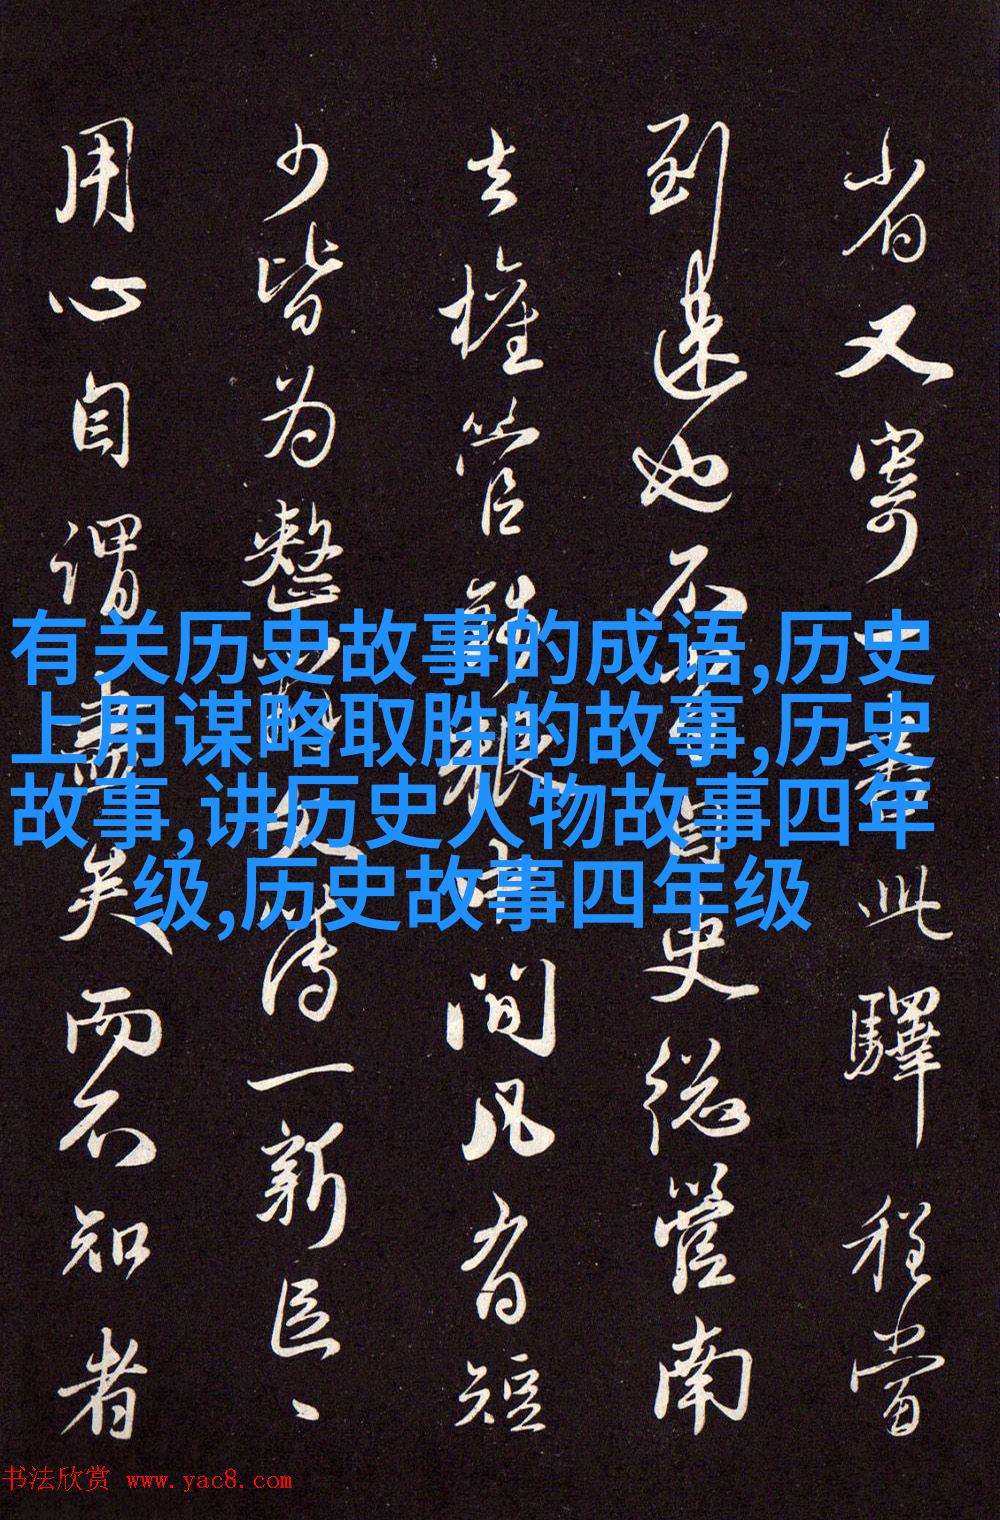 省又寄一書此驛程當
到速也不史南
去權管間凡有短
少皆为整一新
用心自謂盡矣而不知者
有关历史故事的成语,历史
上用谋略取胜的故事,历史
故事,讲历史人物故事四年
级,历史故事四年级
书法欣赏 www.yac8.com